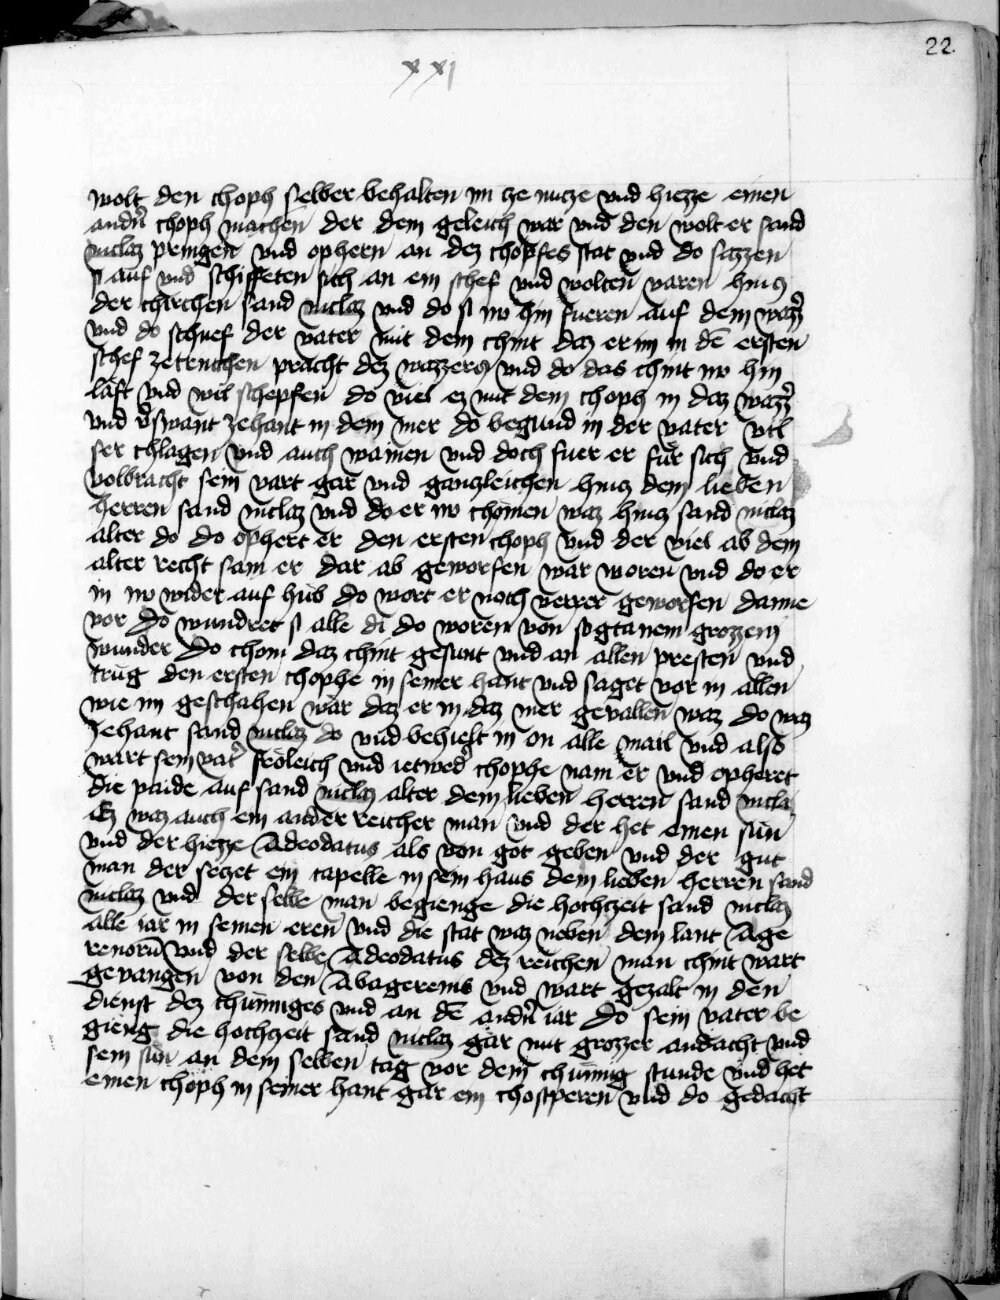 22
xxj
wolt den choph selber behalten im ze nucze vnd hiezze einen
andn̄ choph machen der dem geleich war vnd den wolt er sand
niclaz pringen vnd ophern an dez chopfes stat vnd do sazzen
si auf vnd schiffeten sich an ein schef vnd wolten varen hincz
der chirchen sand niclaz vnd do si nv hin fueren auf dem wazz̄
vnd do schuef der vater mit dem chint daz er im in dē ersten
schef ze trinchen pracht dez wazzers vnd do das chint nv hin
laft vnd wil schepfen do viel ez mit dem choph in daz wazz̄
vnd v̄swant zehant in dem mer do begund in der vater vil
ser chlagen vnd auch wainen vnd doch fuer er für sich vnd
volbracht sein vart gar vnd gänczleichen hincz dem lieben
herren sand niclaz vnd do er nv chomen waz hincz sand niclaz
alter do do ophert er den ersten choph vnd der viel ab dem
alter recht sam er dar ab geworfen wär woren vnd do er
in nv wider auf hüb do wort er noch verrer geworfen danne
vor Do wundret si alle di do woren von sogtanem grozzem
wunder Do chom daz chint gesunt vnd an allen presten vnd
trüg den ersten chophe in seiner hant vnd saget vor in allen
wie im geschahen wär daz er in daz mer gevallen waz do waz
zehant sand niclaz do vnd behielt in on alle mail vnd also
wart sein vat̄ fröleich vnd ietwed̄ chophe nam er vnd opheret
die paide auf sand niclaz alter dem lieben herren sand nicla
Ez waz auch ein ander reicher man vnd der het einen sün
vnd der hiezze Adeodatus als von got geben vnd der gut
man der seczet ein capelle in sein haus dem lieben herren sand
niclaz vnd der selbe man begienge die hochzeit sand niclaz
alle iar in seinen eren vnd die stat waz neben dem lant Age
renorū vnd der selbe Adeodatus dez reichen man chint wart
gevangen von den Abagerenis vnd wart gezalt in den
dienst dez chünniges vnd an dē andn̄ iar Do sein vater be
gieng die hochzeit sand niclaz gar mit grozzer andacht vnd
sein sün an dem selben tag vor dem chünnig stunde vnd het
einen choph in seiner hant gar ein chostperen vnd do gedacht